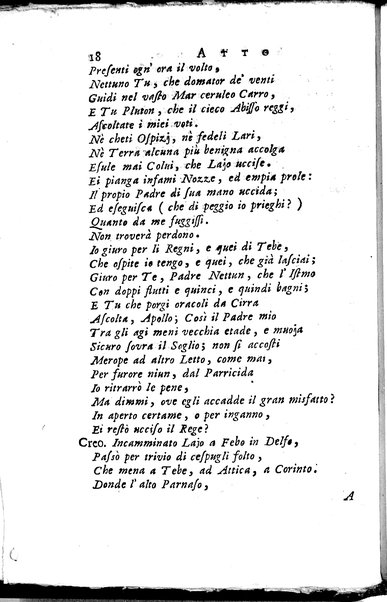 18 ATTO
Presenti ogn' ora il volto,
Nettuno Tu, che domator de' venti
Guidi nel vasto Mar ceruleo Carro,
E Tu Pluton, che il cieco Abisso reggi,
Ascoltate i miei voti.
Nè cheti Ospizj, nè fedeli Lari,
Nè Terra alcuna più benigna accolga
Esule mai Colui, che Lajo uccise.
Ei pianga infami Nozze, ed empia prole:
Il propio Padre di sua mano uccida;
Ed eseguisca (che di peggio io prieghi?)
Quanto da me fuggissi.
Non troverà perdono.
Io giuro per li Regni, e quei di Tebe,
Che ospite io tengo, e quei, che già lasciai;
Giuro per Te, Padre Nettun, che l'Istmo
Con doppi flutti e quinci, e quindi bagni;
E Tu che porgi oracoli da Cirra
Ascolta, Apollo; Così il Padre mio
Tra gli agi meni vecchia etade, e muoja
Sicuro sovra il Soglio; non si accosti
Merope ad altro Letto, come mai,
Per furore niun, dal Parricida
Io ritrarrò le pene,
Ma dimmi, ove egli accadde il gran misfatto?
In aperto certame, o per inganno,
Ei restò ucciso il Rege?
Creo. Incamminato Lajo a Febo in Delfo,
Passò per trivio di cespugli folto,
Che mena a Tebe, ad Attica, a Corinto.
Donde l'alto Parnaso,
A